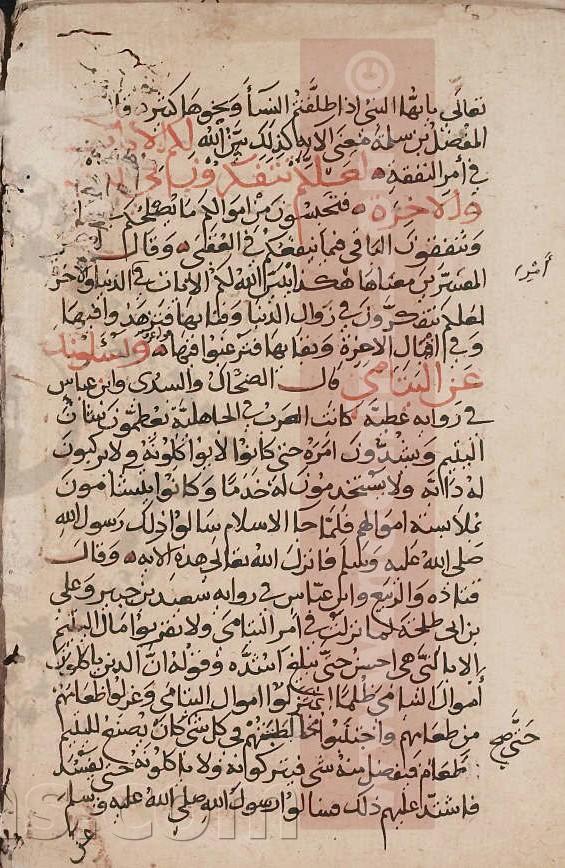 تعالى يايها النبى اذا طلقتم النسا ونحوها كثير وقال
المفضل بن سلمة معنى الايه كذلك يبين الله لكم الايات
فى امر النفقه لعلكم تتفكرون فى الدنيا
والاخرة فتحبسون من اموالكم ما يصلحكم
وتنفقون الباقى فيما ينفعكم فى العقبى وقال
المفسرين معناها هكذا يبين الله لكم الايات فى الدنيا والاخرة
لعلكم تتفكرون فى زوال الدنيا وفنايها فتزهدوا فيها
وفى اقبال الاخرة وبقايها فترغبوا فيها ويسلونك
عن اليتامى قال الضحاك والسدى وابن عباس
فى رواية عطية كانت العرب فى الجاهلية يعظمون شان
اليتيم ويشددون امره حتى كانوا لا يواكلونه ولا يركبون
له دابة ولا يستخدمون له خدما وكانوا يتشامون
بملابسة اموالهم فلما جا الاسلام سالوا ذلك رسول الله
صلى الله عليه وسلم فانزل الله تعالى هذه الايه وقال
قتاده والربيع وابن عباس فى رواية سعيد بن جبير وعلى
بن ابى طلحة لما نزلت فى امر اليتامى ولا تقربوا مال اليتيم
الا بالتى هى احسن حتى يبلغ اشده وقوله ان الذين ياكلون
اموال اليتامى ظلما اعتزلوا اموال اليتامى وعزلوا طعامهم
من طعامهم واجتنبوا مخالطتهم فى كل شى كان يصنع لليتيم
طعام فيفضل منه شى فيتركوانه ولا ياكلونه حتى يفسد
فاشتد عليهم ذلك فسالوا رسول الله صلى الله عليه وسلم
عن
حتى صح